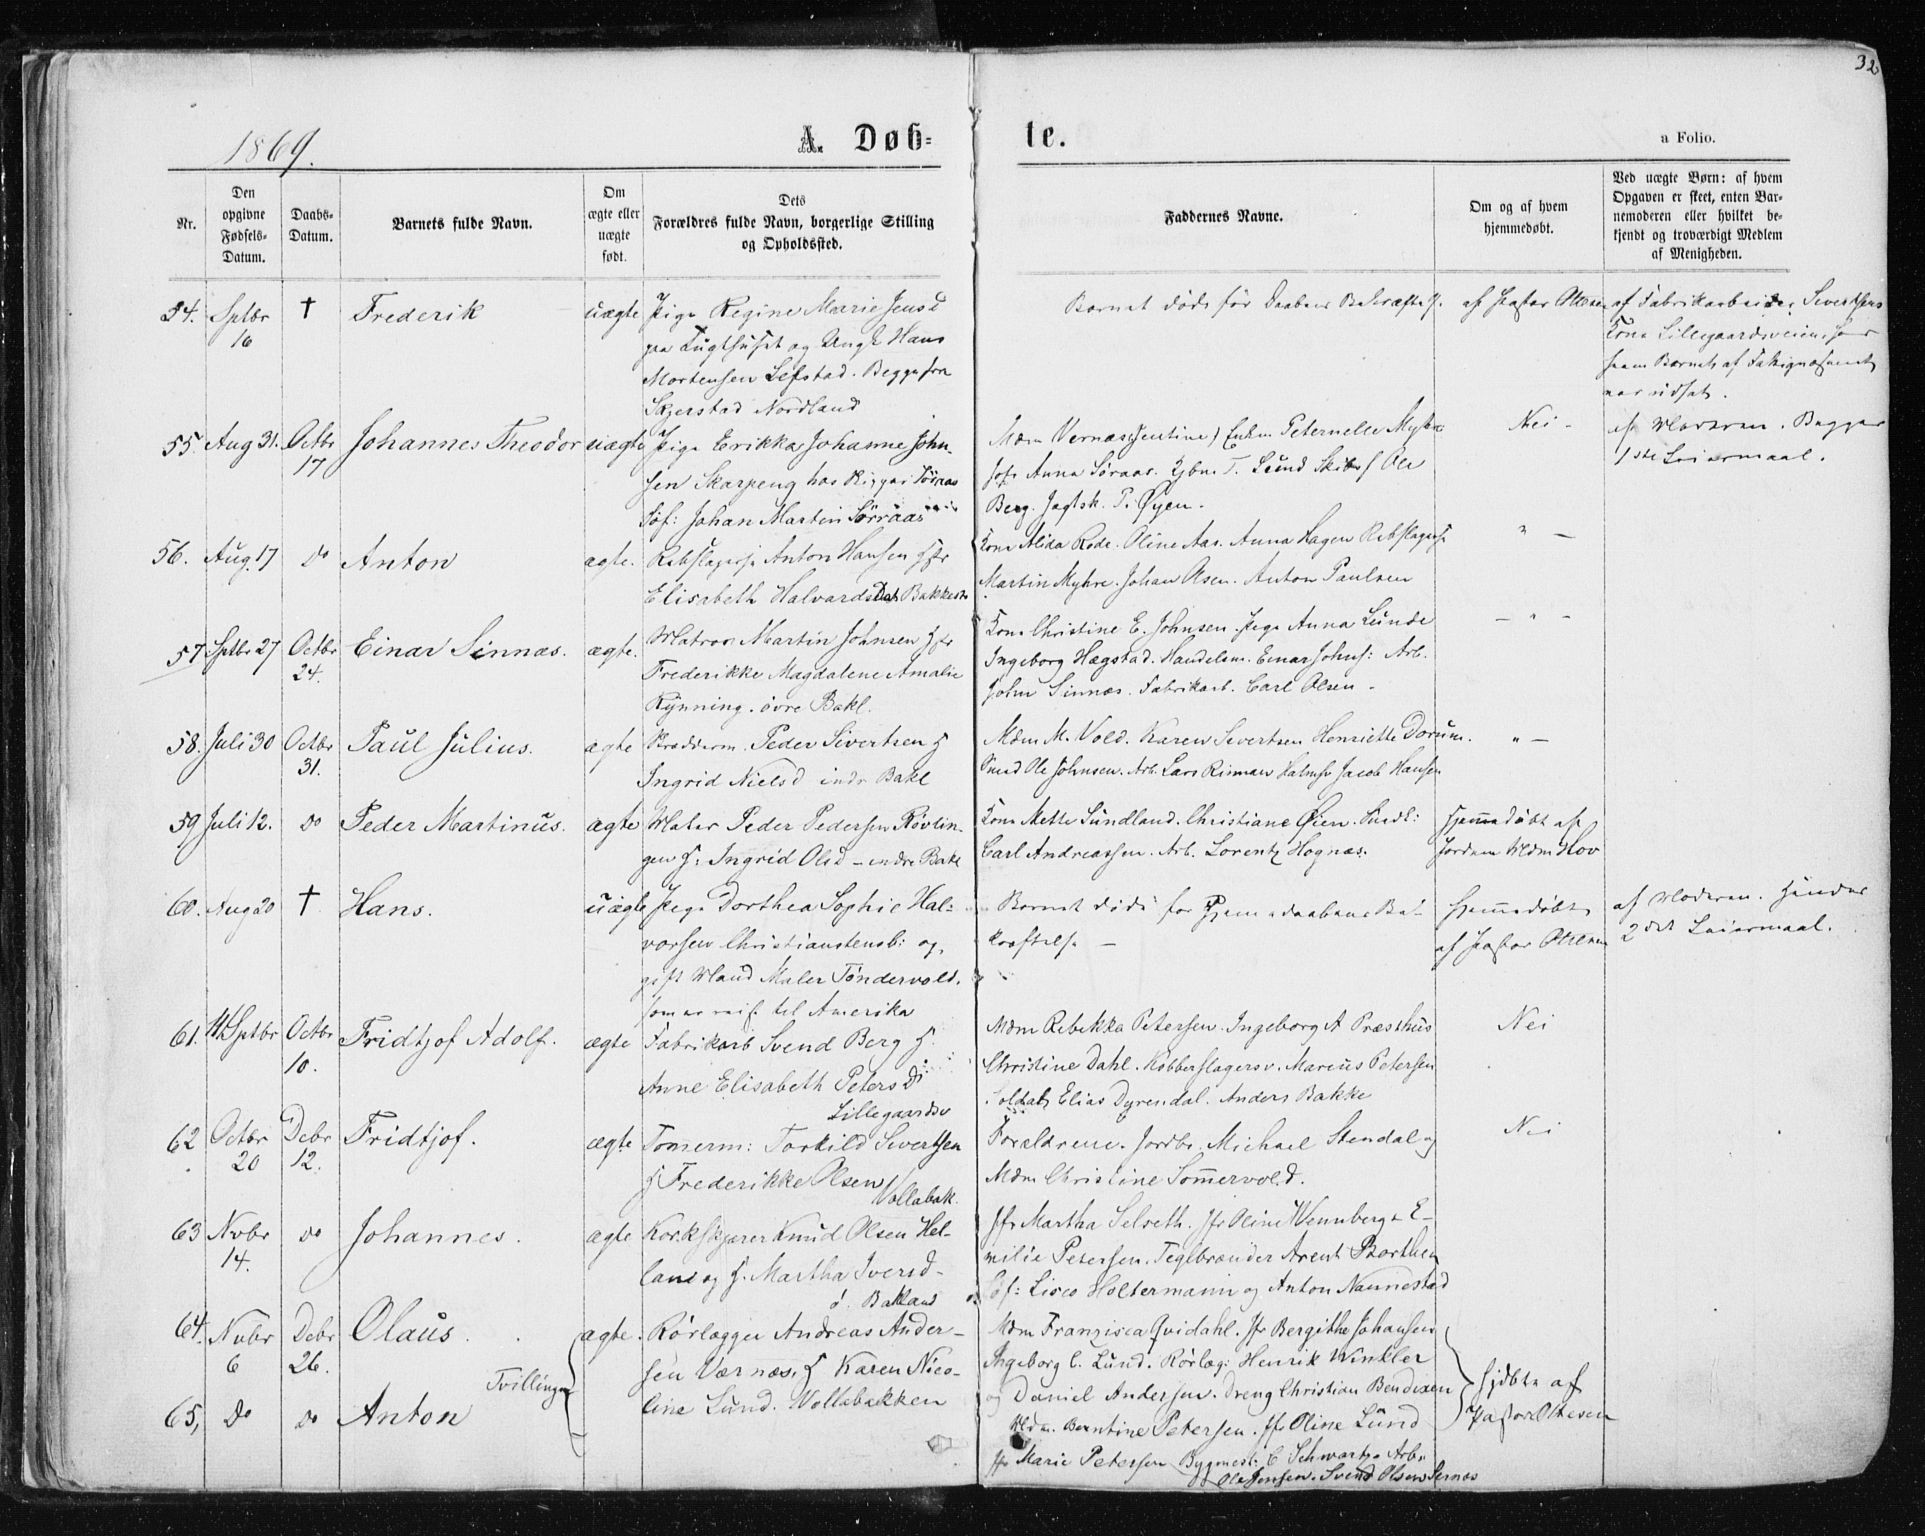 32
1869.
A. Døb=
te.
a Folio.
Nr.
Den opgivne Fødsels-Datum.
Daabs-Datum.
Barnets fulde Navn.
Om ægte eller uægte født.
Dets
Forældres fulde Navn, borgerlige Stilling
og Opholdssted.
Faddernes Navne.
Om og af hvem
hjemmedøbt.
Ved uægte Børn: af hvem
Opgaven er skeet, enten Bar-
nemoderen eller hvilket be-
kjendt og troværdigt Medlem
af Menigheden.
54. Sptbr 16 † Frederik uægte Pige Regine Marie Jensd
paa Tugthuset og Ungk Hans
Mortensen Lefstad. Begge fra
Skjerstad Nordland
Barnet døde før Daabens Bekræftelse
af Pastor Ottesen
af Fabrikarbeider Sivertsens
Kone Lillegaardsveien
55. Aug 31. Octbr 17 Johannes Theodor uægte Pige Erikka Johanne John-
sen Skarpeng hos Rigger Söraas
Söf: Johan Martin Sörraas
Mdm Vernæs (Jentine) Enken Peternelle Myhre
Jfr Anna Søraas. Lund Ole
Berg. Jagtsk. P. Øyen.
Nei -
af Moderen. Begges
1ste Leiermaal.
56. Aug. 17 do Anton ægte. Rebslagersv Anton Hansen
Elisabeth Halvardsdat Bakkestr
Kone Alida Rode. Oline Aas. Anna Hagen Rebslagers
Martin Myhre. Johan Olsen. Anton Paulsen
" -
57 Sptbr 27 Octbr 24. Einar Sinnæs. ægte. Matros Martin Johnsen
Frederikke Magdalene Amalie
Rynning. øvre Bakl.
Kone Christine E. Johnsen. Pige Anna Lunde
Ingeborg Hægstad. Handelsm. Einar Johns: Arb.
John Sinnæs. Fabrikarb. Carl Olsen -
- " -
58. Juli 30 Octbr 31. Paul Julius. ægte Skrædderm. Peder Sivertsen
Ingrid Nielsd indr Bakl
Mdm M. Vold. Karen Sivertsen Henriette Dorum.
Smed Ole Johnsen. Arb. Lars Rinnan Jacob Hansen
" -
59 Juli 12. do Peder Martinus. ægte Matros Peder Pedersen Røvlin-
gen Ingrid Olsd - indre Bakl
Kone Mette Sundland. Christiane Øien. Smedl:
Carl Andreassen. Arb. Lorentz Hognæs.
Hjemmedøbt af
Jordem Mdm Hov
60. Aug 20 † Hans. uægte Pige Dorthea Sophie Hal=
vorsen Christianstensb: og
gift Mand Maler Töndervold.
som er reist til Amerika
Barnet døde før Hjemmedaabens Be-
kræftelse -
Hjemmedøbt
af Pastor Ottesen
af Moderen. Hendes
2det Leiermaal.
61. Sptbr Octbr 10. Fridtjof Adolf. ægte Fabrikarb Svend Berg
Anne Elisabeth Petersd
Lillegaardsv
Mdm Rebekka Petersen. Ingeborg A Præsthus
Christine Dahl. Kobberslagersv. Marcus Petersen
Soldat Elias Dyrendal. Anders Bakke
Nei
62 Octbr 20 Debr 12. Fridtjof. ægte Tömerm: Torkild Sivertsen
Frederikke Olsen
Vollabak.
Forældrene. Jordbr. Michael Stendal og
Mdm Christine Sommervold.
Nei
63 Nvbr 14. do Johannes. ægte Korkskjærer Knud Olsen Hel-
land og Martha Iversd-
ö. Bakland
Jfr Martha Selseth. Jfr Oline Wennberg. E-
milie Petersen. Teglbrænder Arent Borthen
Söf: Lisco Holtermann og Anton Nannestad
64. Nvbr 6 Debr 26. Olaus. ægte. Rörlægger Andreas Ander-
sen Værnæs, Karen Nico-
line Lund. Vollabakken
Tvillinger
65, Do do Anton
Mdm Franzisca Qvidahl. Jfr Bergithe Johansen
Ingeborg C. Lund. Rörlæg: Henrik Winkler
og Daniel Andersen. Dreng Christian Bendixen
Mdm. Berntine Petersen. Jfr Oline Lund
Jfr Marie Petersen Bygmest: C Schwartz. Arb:
Ole Jensen. Svend Olsen Sernæs
Hjdöbte af
Pastor Ottesen